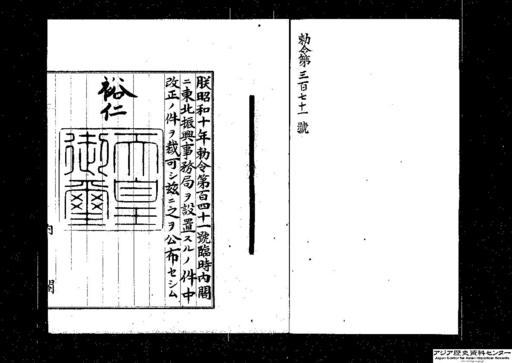 勅令第三百七十一號
朕昭和十年勅令第百四十一號臨時內閣
ニ東北振興事務局ヲ設置スルノ件中
改正ノ件ヲ裁可シ玆ニ之ヲ公布セシム
裕仁
天皇
御璽
內閣
アジア歴史資料センター
Japan Center for Asian Historical Records